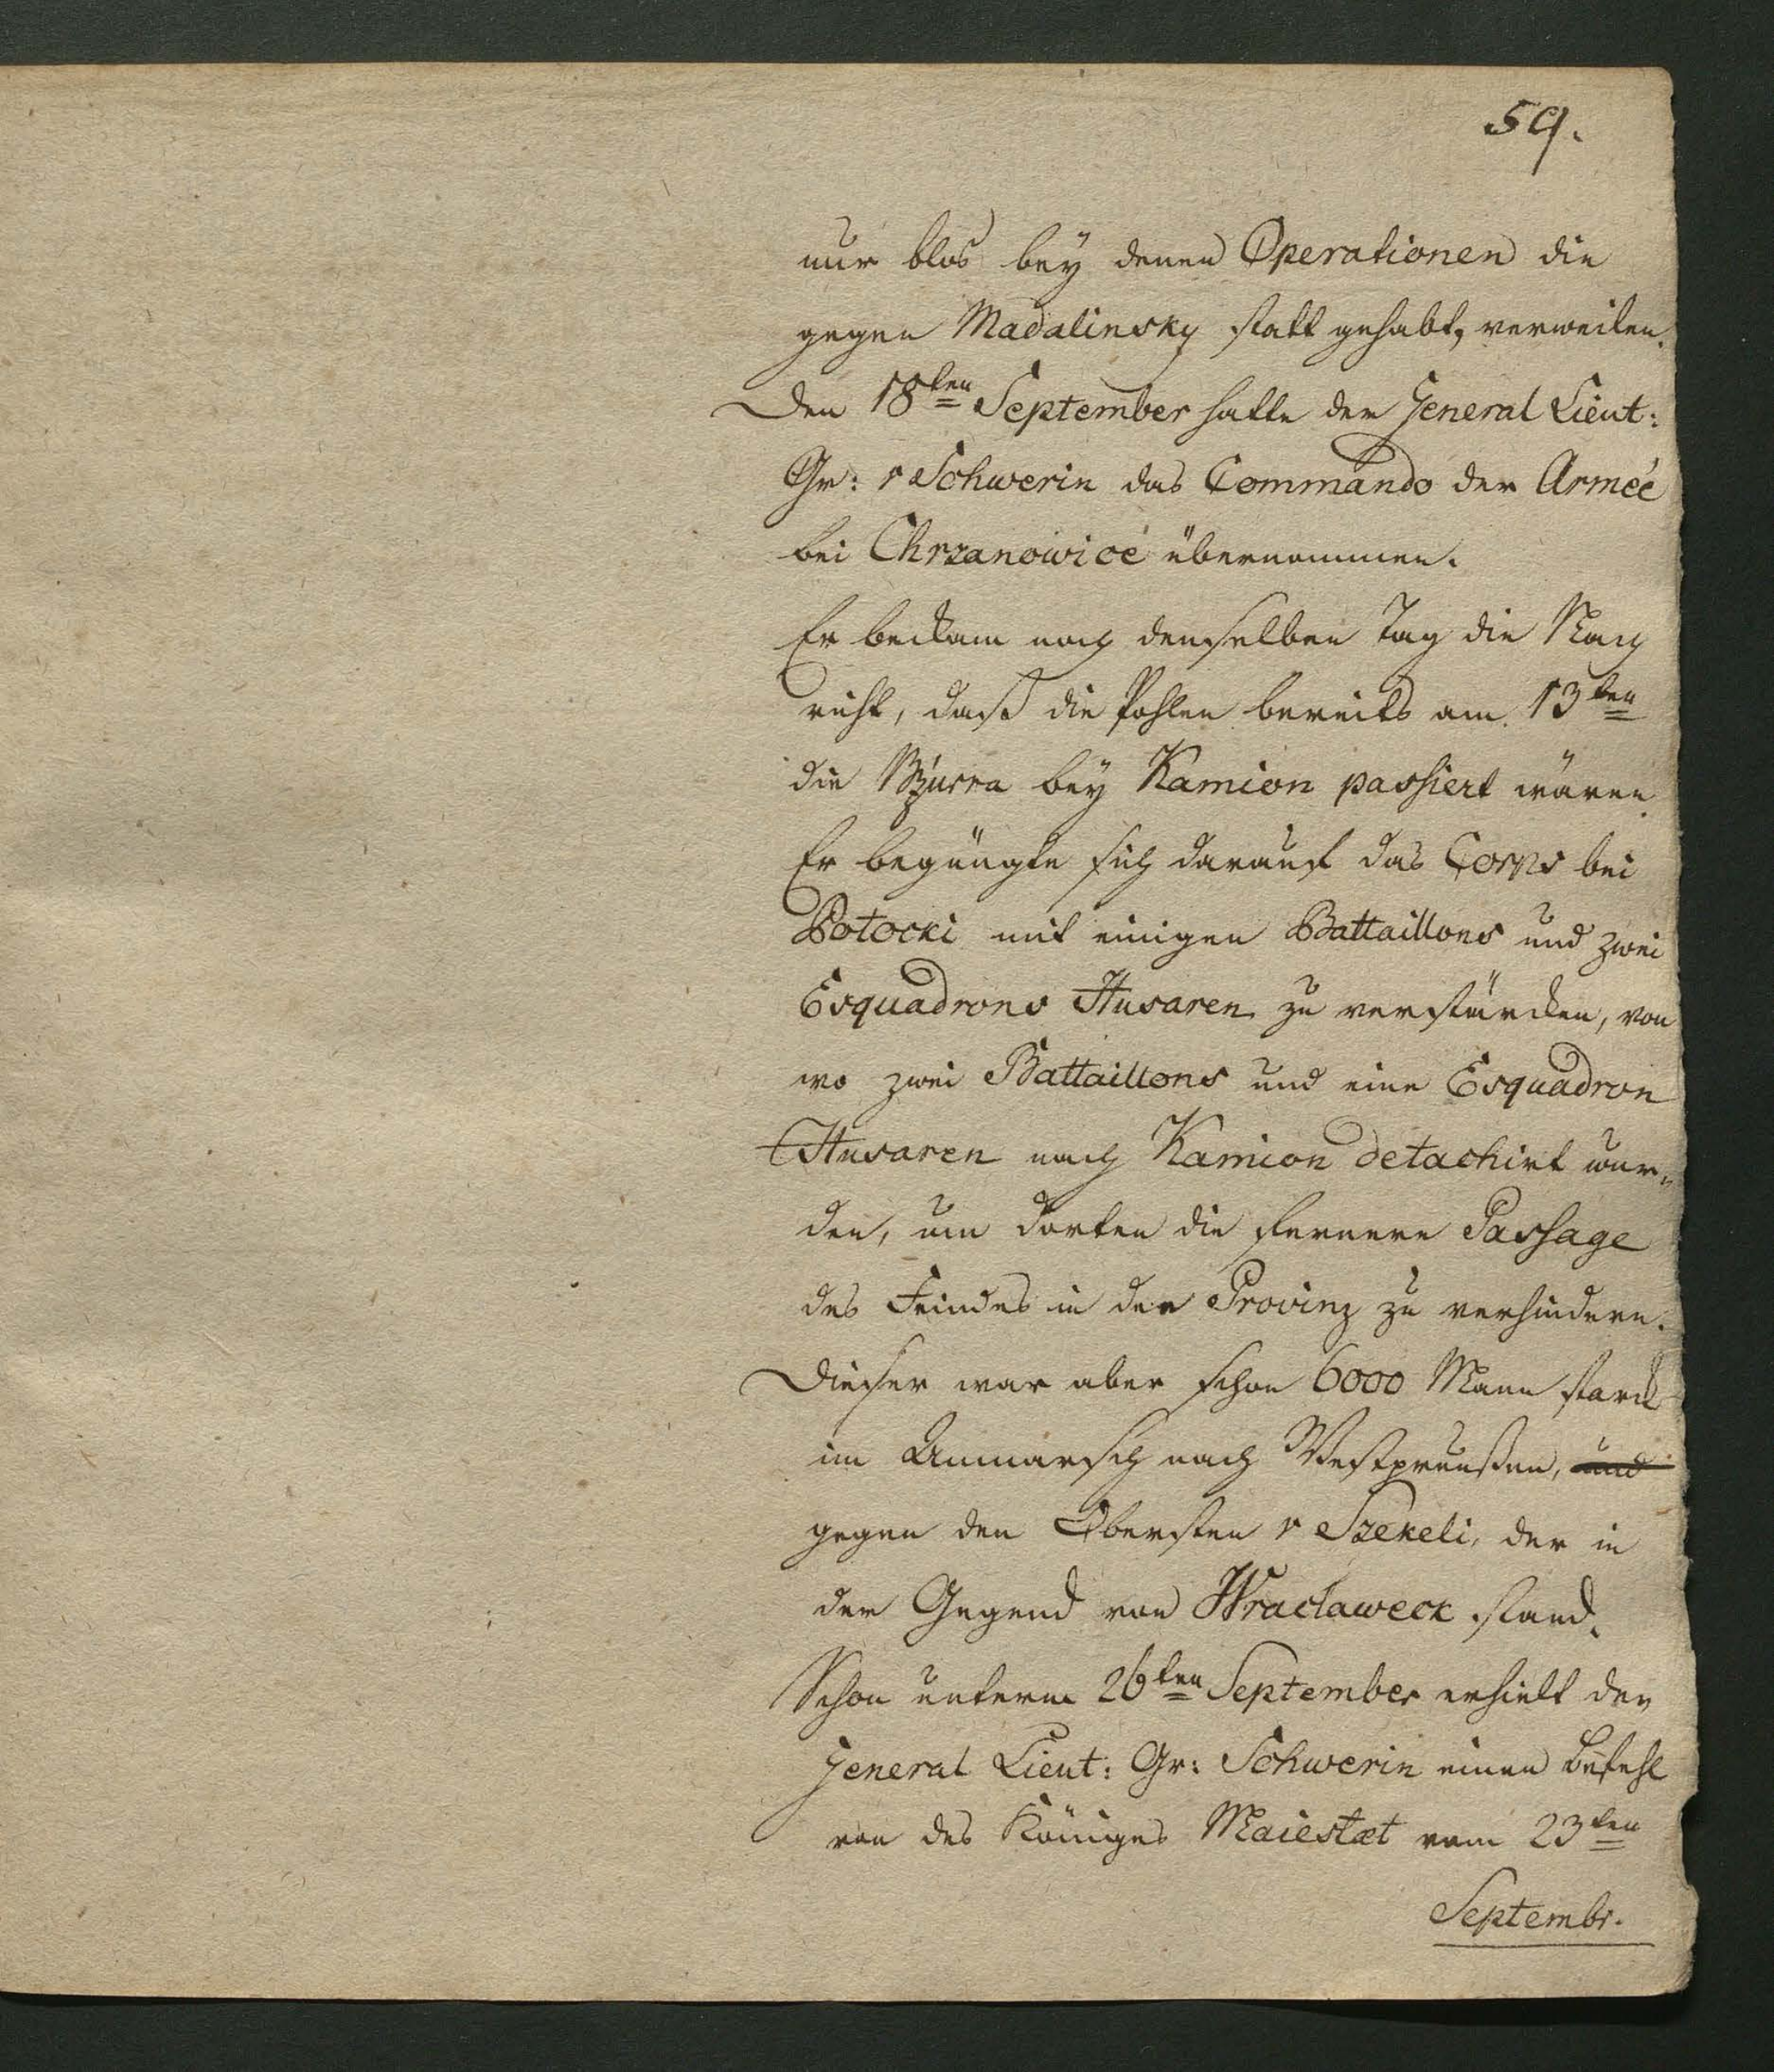 59.
nur blos bey denen Operationen die
gegen Madalinsky statt gehabt, verweilen.
Den 18ten September hatte der General Lieut:
Gr: v Schwerin das Commando der Armeé
bei Chrzanowicé übernommen.
Er beckam noch denselben Tag die Nach
richt, daß die Pohlen bereits am 13ten
die Bzurra bey Kamion passiert wären.
Er begnügte sich darauf das Corps bei
Potocki mit einigen Battaillons und zwei
Esquadrons Husaren zu verstärcken, von
wo zwei Battaillons und eine Esquadron
Husaren nach Kamion detachirt wur„
den, um dorten die fernere Passage
des Feindes in der Provinz zu verhindern.
Dieser war aber schon 6000 Mann starck
im Anmarsch nach Westpreußen, und
gegen den Obersten v Szekeli, der in
der Gegend von Wraclaweck stand.
Schon unterm 26ten September erhielt der
General Lieut: Gr: Schwerin einen Befehl
von des Königes Maiestæt vom 23ten
Septembr.